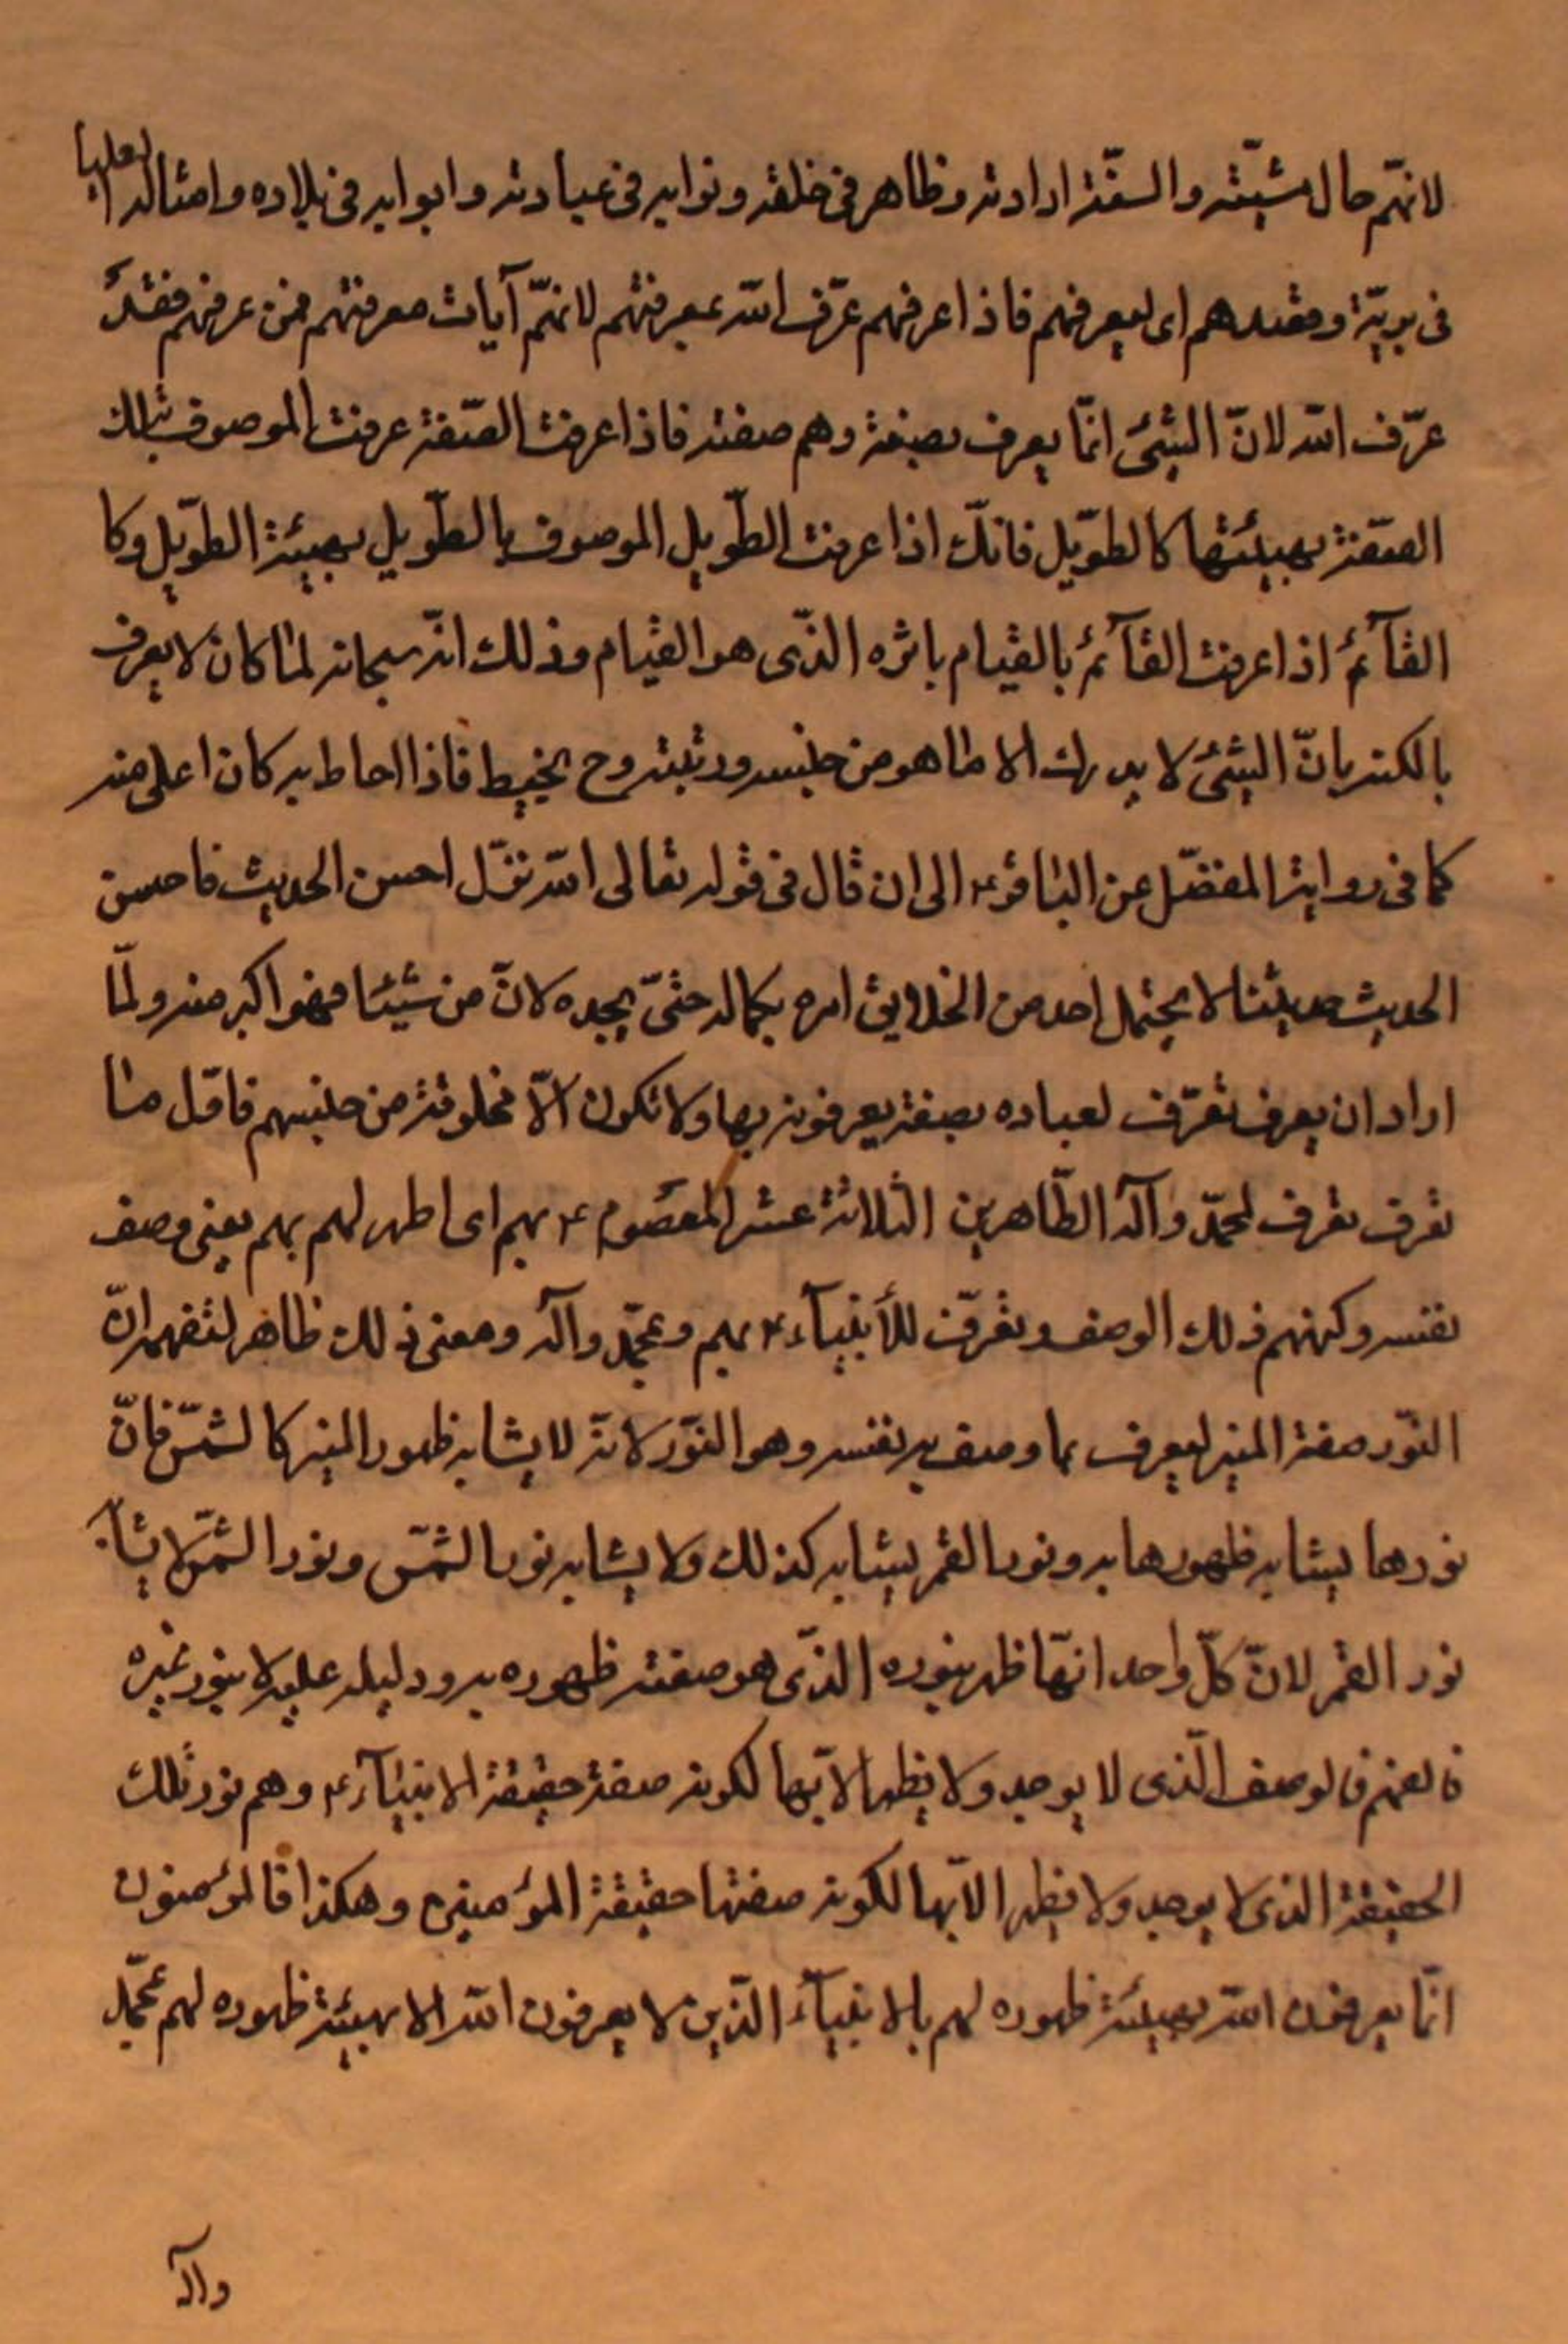 لانهّم حال مشيّته والسنّة ارادته وظاهر فى خلقه ونوابه فى عبادته وابوابه فى بلاده وامثاله العليا
فى بريّة وفقدهم اى ليعرفهم فاذا عرفهم عرّف الله بمعرفتهم لانهّم آيات معرفتهم فمن عرفهم فقد
عرّف الله لانّ الشئ انمّا يعرف بصفة وهم صفته فاذا عرفت الصّفة عرفت الموصوف بتلك
الصّفة بهيئتها كالطوّيل فانكّ اذا عرفت الطّويل الموصوف بالطّويل بهيئة الطوّيل وكا
القآئم اذا عرفت القآئم بالقيام باثره الذّى هو القيام وذلك انّه سبحانه لمّا كان لا يعرف
بالكنه بانّ الشئ لا يدرك الا ما هو من جنسه ورتبته وح يحيط فاذا احاط به كان اعلى منه
كما فى رواية المفضّل عن الباقر ؏ الى ان قال فى قوله تعالى الله نزّل احسن الحديث فاحسن
الحديث حديثنا لا يحتمل احد من الخلايق امره بكماله حتىّ يحده لانّ من شيئا فهو اكبر منه ولمّا
اراد ان يعرف تعرّف لعباده بصفة يعرفونه بها ولا تكون الّا مخلوقة من جنسهم فاوّل ما
تعرف تعرف لمحمّد وآله الطّاهرين الثلاثة عشر المعصوم ؏ بهم اى اظهر لهم بهم يعنى وصف
نفسه وكنههم ذلك الوصف وتعرّف للأنبيآء ؏ بهم وبمحمّد وآله ومعنى ذلك ظاهر لتفهم انّ
النوّر صفة المنير ليعرف بما وصف به نفسه وهو النوّر لانهّ لا يشابه ظهور المنير كالشمسّ فانّ
نورها يشابه ظهورها به ونور القمر يشابه كذلك ولا يشابه نور الشمسّ ونور الشمسّ لا يشابه
نور القمر لانّ كلّ واحد انهّا ظهر بنوره الذّى هو صفة ظهوره به ودليله عليه لا بنور غيره
فالوصف الّذى لا يوجد ولا يظهر الاّ بها لكونه صفة حقيقة الانبيآء ؏ وهم نور تلك
الحقيقة الذى لا يوجد ولا يظهر الاّ بها لكونه صفتها حقيقة المؤمنين وهكذا فالمؤمنون
انمّا يعرفون الله بهيئة ظهوره لهم بالانبيآء الذّين لا يعرفون الله الا بهيئة ظهوره لهم بمحمّد
وآله